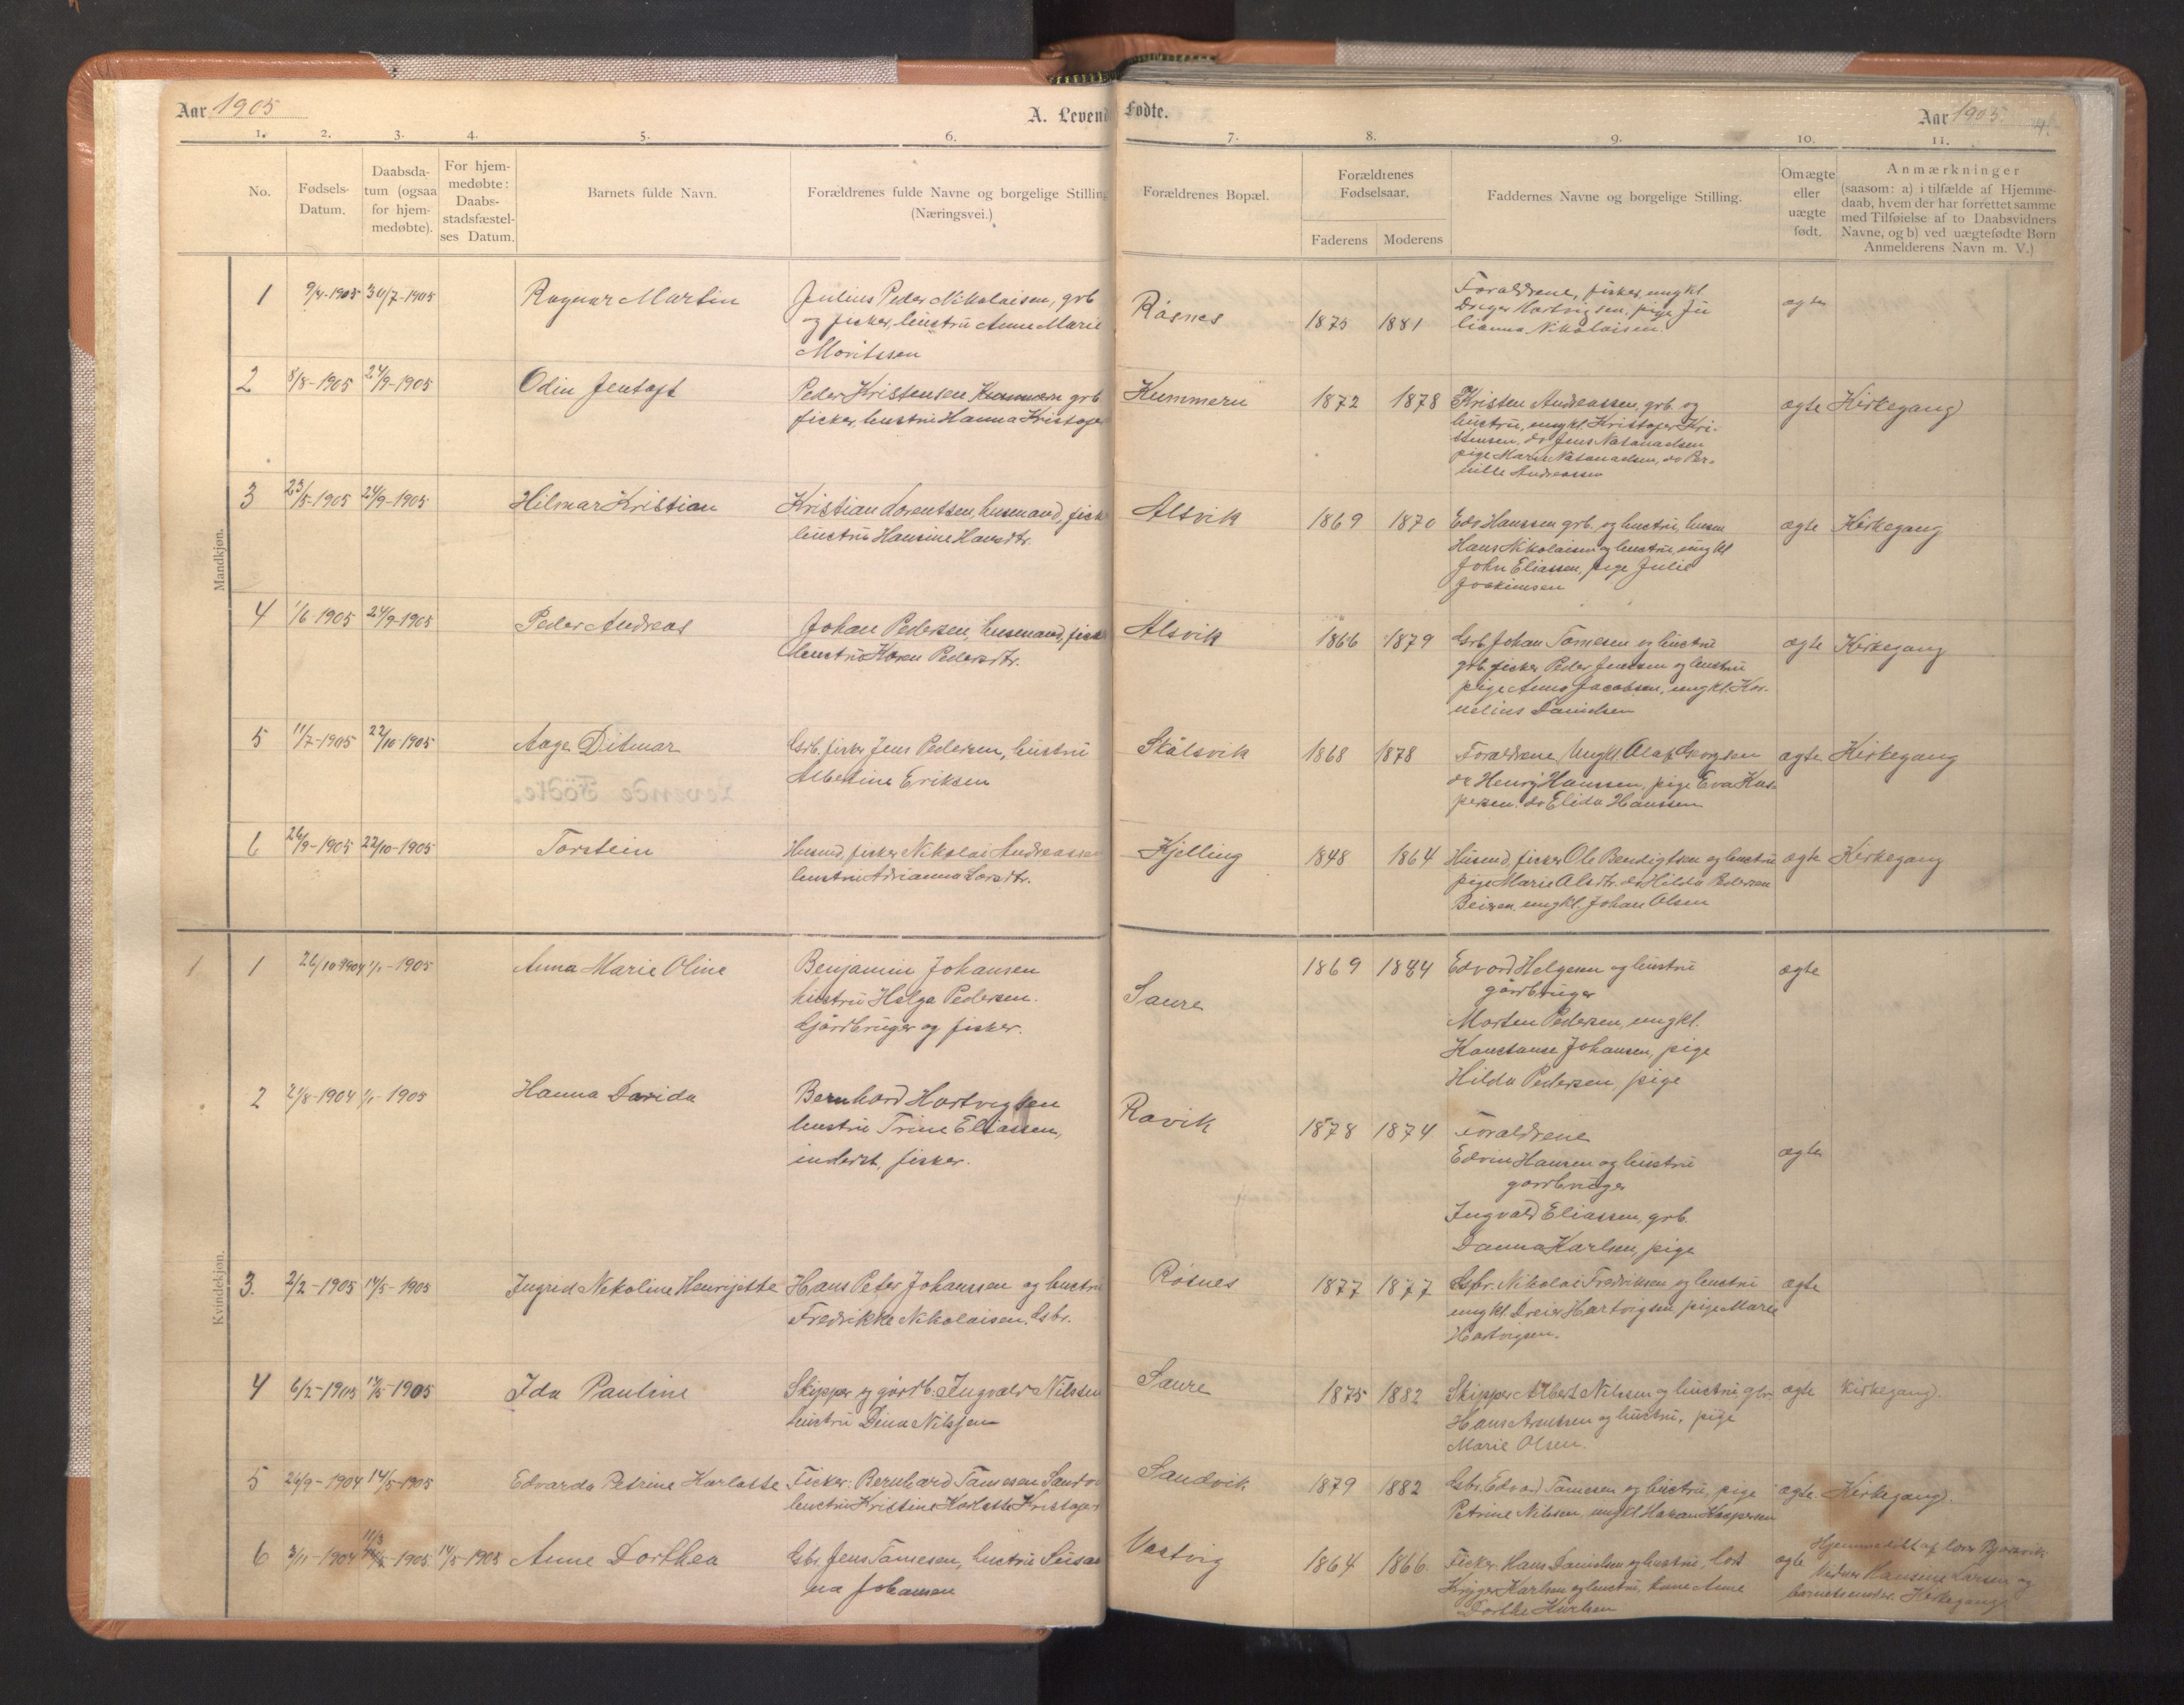 Aar 1905
A. Levende
1. 2. 3. 4. 5. 6.
No.
Fødsels-
Datum.
Daabsda-
tum (ogsaa
for hjem-
medøbte).
For hjem-
medøbte:
Daabs-
stadsfæstel-
ses Datum.
Barnets fulde Navn.
Forældrenes fulde Navne og borgelige Stilling
(Næringsvei.)
Mandkjøn.
1 9/4-1905 30/7-1905 Ragnar Martin Julius Peder Nikolaisen, grb
og fisker, hustru Anne Marie
Moritssen
2 8/8-1905 24/9-1905 Odin Jentoft Peder Kristensen Kummern grb
fisker, hustru Hanna Kristofer
3 23/5-1905 24/9-1905 Hilmar Kristian Kristian Lorentsen, husmand, fisk
hustru Hansine Hansdtr.
4 1/6 1905 24/9-1905 Peder Andreas Johan Pedersen, husmand, fisk
hustru Karen Pedersdtr.
5 11/7-1905 22/10-1905 Aage Ditmar Grb. fisker Jens Pedersen, hustru
Albertine Eriksen
Levende Födte.
6 26/9-1905 22/10-1905 Torstein Husmd, fisker Nikolai Andreassen
hustru Adrianna Larsdtr.
Kvindekjøn.
1 1 26/10 1904 1/1-1905 Anna Marie Oline Benjamin Johansen
hustru Helga Pedersen.
Gårdbruger og fisker.
2 21/8-1904 1/1-1905 Hanna Davida Bernhard Hartvigsen
hustru Trine Eliassen,
inderst, fisker.
3. 2/2-1905 14/5-1905 Ingrid Nikoline Henrijette Hans Peter Johanssen og hustru
Fredrikke Nikolaisen. Gbr.
4 6/2-1905 14/5-1905 Ida Pauline Skipper og gårdb. Ingvald Nilssen
hustru Dina Nilssen
5 26/9-1904 14/5-1905 Edvarda Petrine Karlotte Fisker: Bernhard Tomesen Sandv
hustru Kristine Karlotte Kristofer
6 3/11-1904 1905. 14/5-1905 Anne Dorthea Gbr. Jens Tomesen, hustru Susan
na Johansen
Fødte.
Aar 1905. 4.
7. 8. 9. 10. 11.
Forældrenes Bopæl.
Forældrenes
Fødselsaar.
Faderens Moderens
Faddernes Navne og borgelige Stilling.
Om ægte
eller
uægte
født.
Anmærkninger
(saasom: a) i tilfælde af Hjemme-
daab, hvem der har forrettet samme
med Tilføielse af to Daabsvidners
Navne, og b) ved uægtefødte Børn
Anmelderens Navn m. V.)
Råsnes 1875 1881 Forældrene, fisker, ungkl
Dreyer Hartvigsen, pige Ju
lianna Nikolaisen.
ægte
Kummern 1872 1878 Kristen Andreassen, grb. og
hustru, ungkl. Kristofer Kri-
stensen, do Jens Natanaelsen
pige Marie Natanaelsen, do Per-
nille Andreassen
ægte Kirkegang
Alsvik 1869 1870 Edv Hanssen grb. og hustru, husm
Hans Nikolaisen og hustru, ungkl
John Eliassen, pige Julie
Joakimsen
ægte Kirkegang
Alsvik 1866 1879 Grb Johan Tomesen og hustru
grb. fisker Peder Jenssen og hustru
pige Anna Jacobsen, ungkl. Kor-
nelius Danielsen
ægte Kirkegang
Skålsvik 1868 1878 Forældrene, Ungkl. Olaf Georgsen
do Henry Hanssen, pige Eva Kas-
persen. do Elida Hanssen
ægte Kirkegang
Kjelling 1848 1864 Husmd, fisker Ole Bendigtsen og hustru
pige Marie Olsdtr. do Hilda Pedersen
Beiren, ungkl. Johan Olsen
ægte Kirkegang
Saure 1869 1884 Edvard Helgesen og hustru
gårdbruger
Morten Pedersen, ungkl.
Konstanse Johansen, pige
Hilda Pedersen, pige
ægte
Ravik 1878 1874 Forældrene
Edvin Hansen og hustru
gårdbruger
Ingvald Eliassen, grb.
Danna Karlsen, pige
ægte
Råsnes 1877 1877 Gbr. Nikolai Fredriksen og hustru
ungkl. Dreier Hartvigsen pige Marie
Hartvigsen.
ægte
Saure 1875 1882 Skipper Albert Nilssen og hustru gbr.
Hans Arntsen og hustru, pige
Marie Olsen.
ægte Kirkegang.
Sandvik 1879 1882 Gbr. Edvard Tomesen og hustru, pige
Petrine Nilssen, ungkl Hakan Kaspersen
ægte. Kirkegang.
Vestvig 1864 1866. Fisker. Hans Danielsen og hustru, lods
Krøger Karlsen og hustru, Anne
Dorthe Karlsen
ægte Hjemmedøbt af
Vidner Hansine Larsen og
barnets moder. Kirkegang